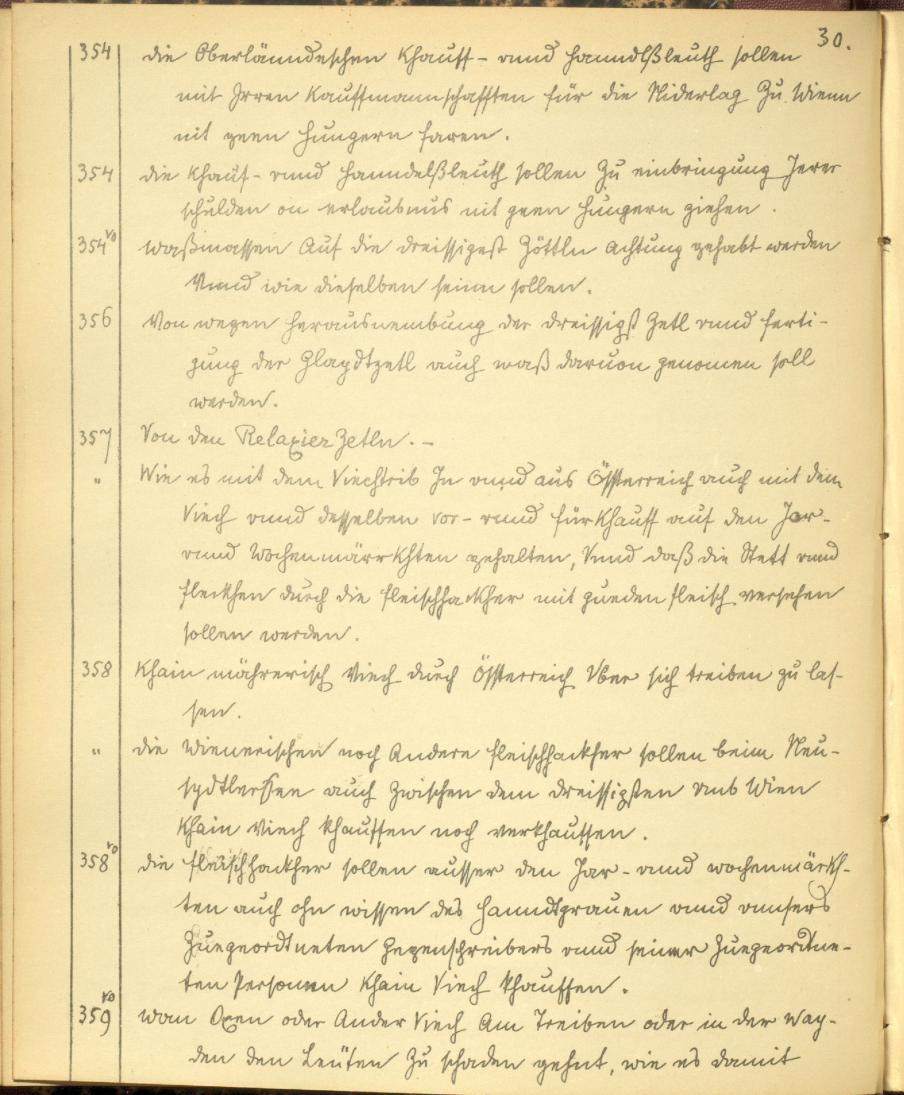 30.
354 die Oberlänndeschen Khauff- vnnd Hanndlßleuth sollen
mit Irren Kauffmannschafften für die Niderlag Zu Wienn
nit geen Hungern faren.
354 die Khauf- vnnd Hanndelßleuth sollen Zu einbringung Jerer
schulden on erlaubnus nit geen Hungern ziehen.
354vo waßmassen Auf die dreissigest Zöttln Achtung gehabt werden
Vnnd wie dieselben seinn sollen.
356 Von wegen Herausnembung der dreissigst Zetl vnnd ferti-
gung der Glaydtzetl auch waß daruon genomen soll
werden.
357 Von den Relaxier Zetln.-
" Wie es mit dem Viechtrib In vnnd aus Össterreich auch mit dem
Viech vnnd desselben vor- vnnd fürkhauff auf den Jar-
vnnd Wochenmärrkhten gehalten, Vnnd daß die Stett vnnd
fleckhen durch die fleischhackher mit gueden fleisch versehen
sollen werden.
358 Khain mährerisch Viech durch Össterreich Vber sich treiben zu las-
sen.
" die Wienerischen noch Andere fleischhackher sollen beim Neu-
sydtlersee auch zwischen dem dreissigsten vnb Wien
Khain Viech khauffen noch verkhauffen.
358vo die fleischhackher sollen ausser den Jar- vnnd wochenmärkh-
ten auch ohn wissen des Hanndtgrauen vnnd vnnsers
Zuegeordtneten gegenschreibers vnnd seiner Zuegeordtne-
ten Personnen Khain Viech khauffen.
359vo wan Oxen oder Ander Viech Am Treiben oder in der Way-
den den Leüten Zu schaden gehnt, wie es damit